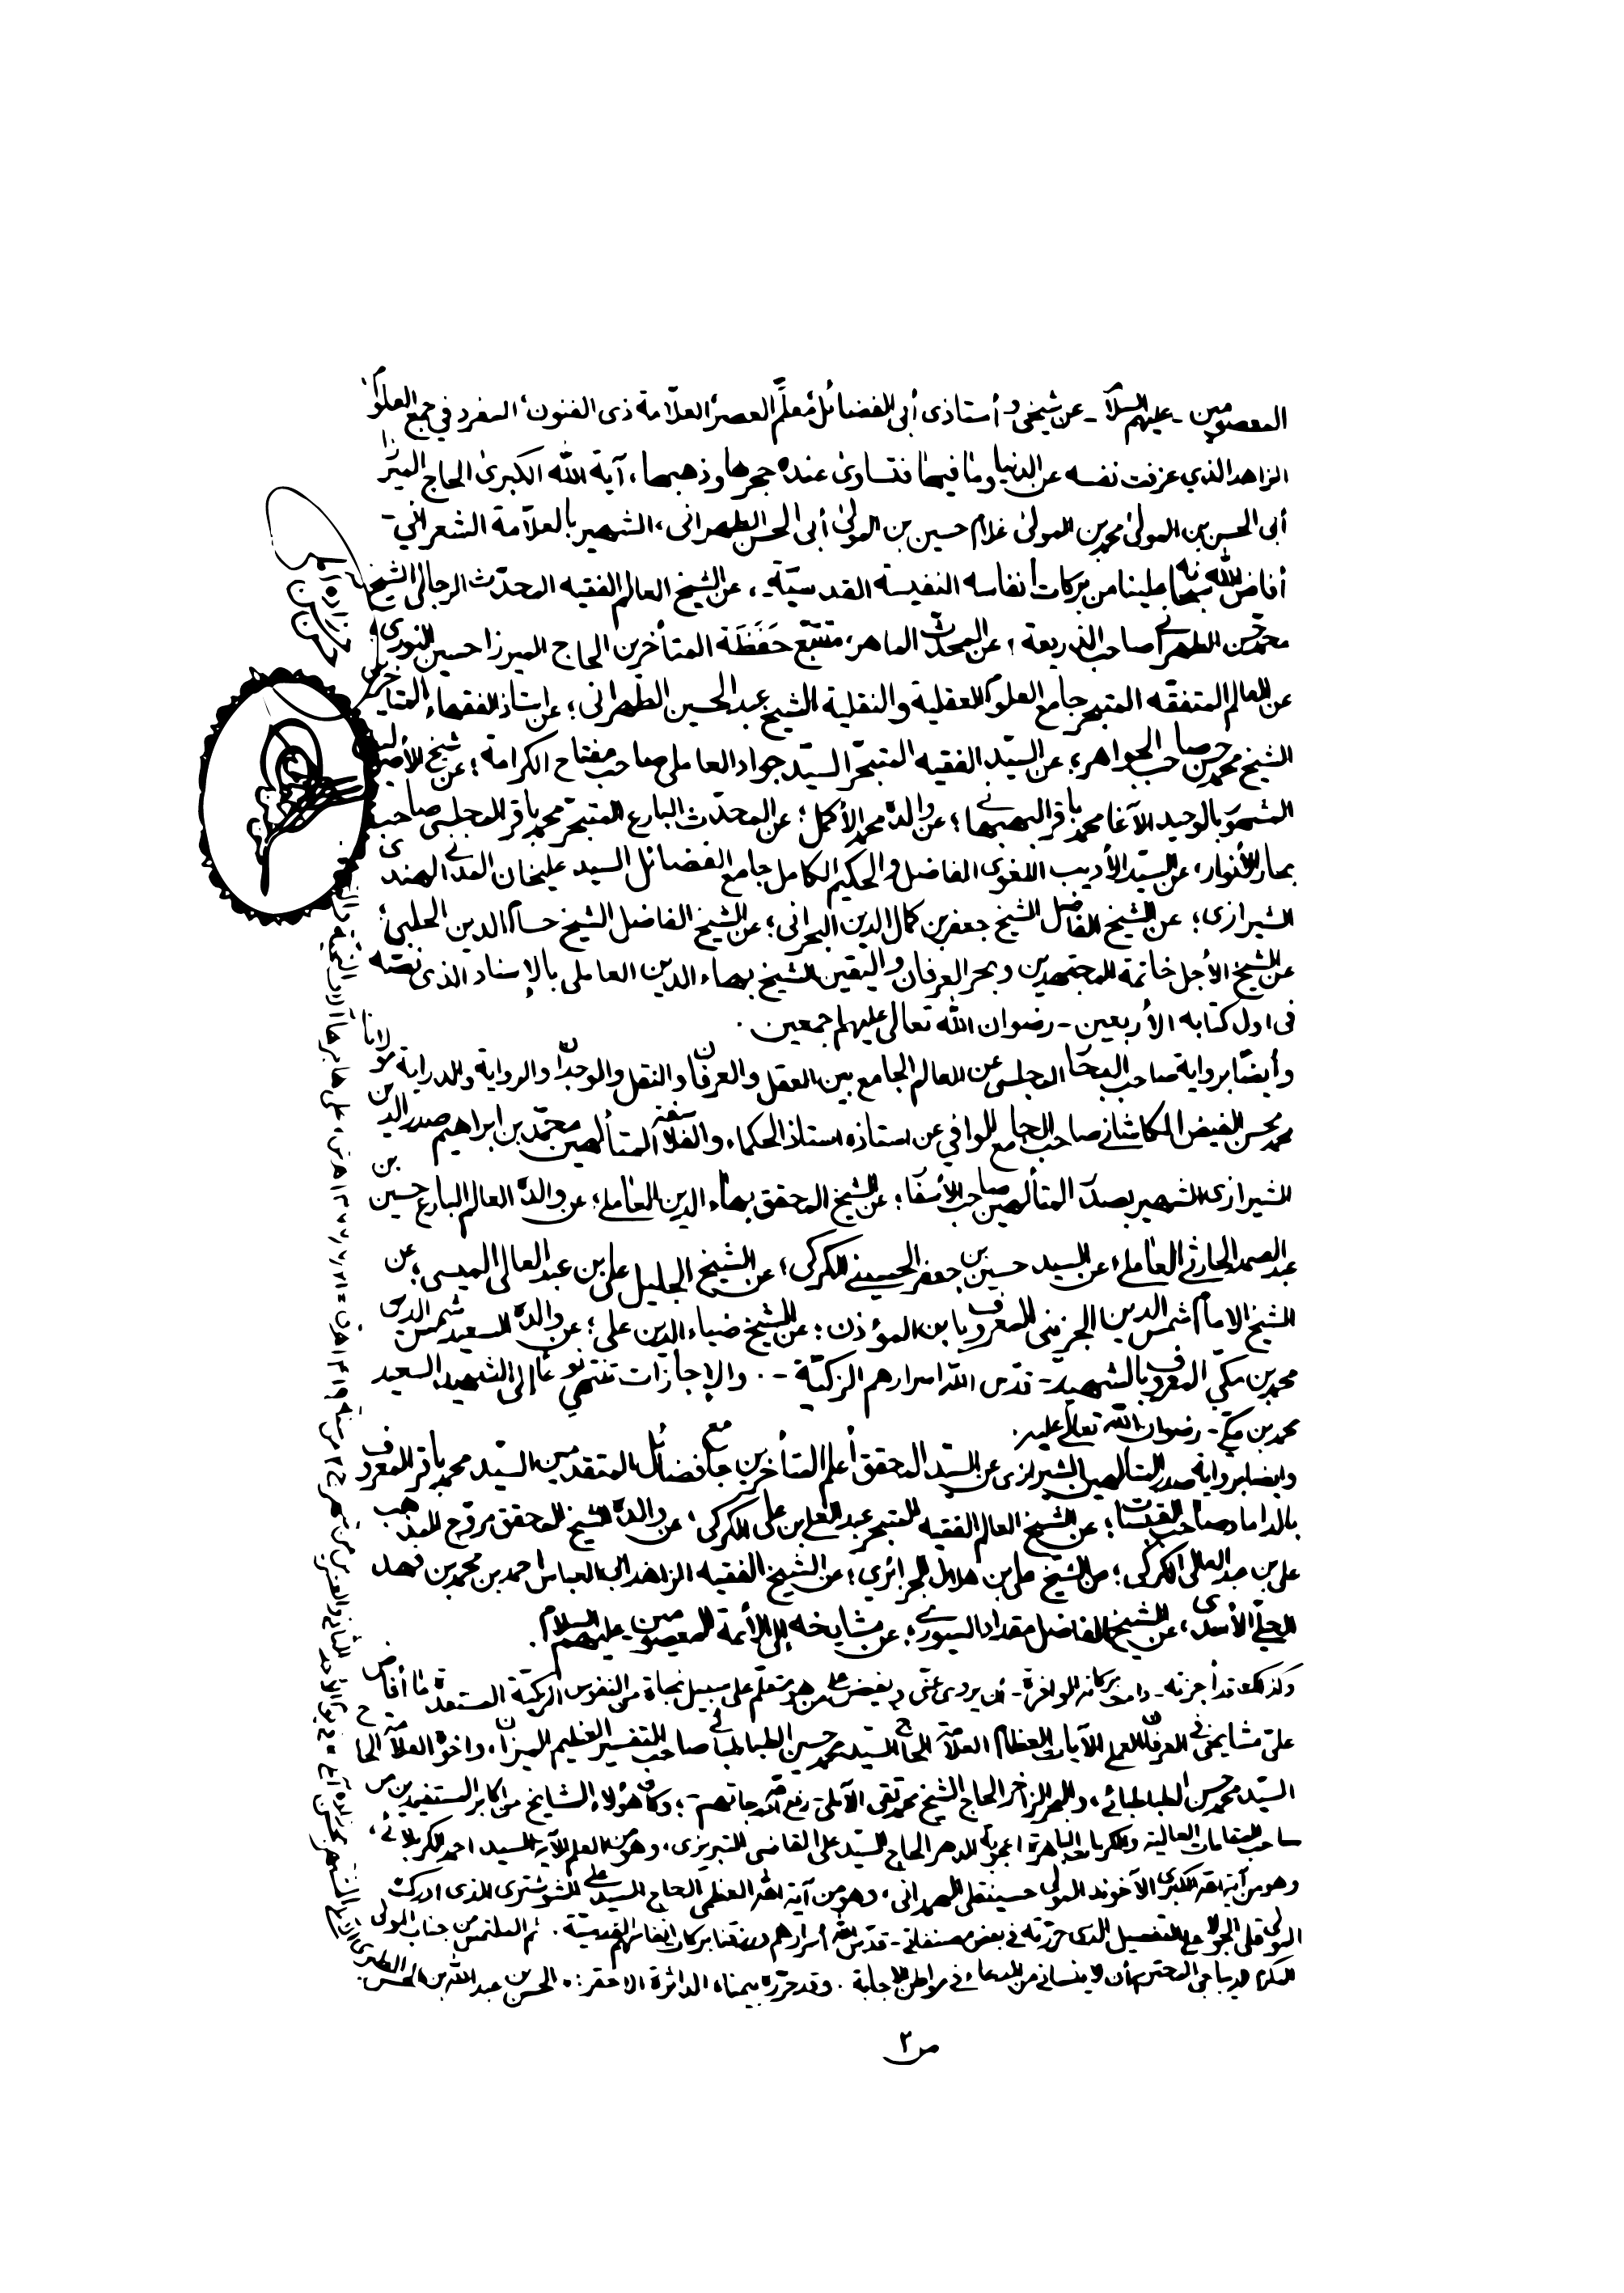 المعصومين -عليهم السلام- عن شيخى وأستاذى أبى الفضائل معلّم العصر العلّامة ذى الفنون، المفرد في جميع العلوم،
الزاهد الذي عزفت نفسه عن الدنيا وما فيها فتساوى عنده حجرها وذهبها، آية الله الكبرى الحاج الميرزا
أبى الحسن بن المولى محمد بن المولى غلام حسين بن المولى أبى الحسن الطهرانى، الشهير بالعلّامة الشعرانى-
أفاض الله سبحانه علينا من بركات أنفاسه النفيسة القدسيّة-، عن الشيخ العالم الفقيه المحدّث الرجالى الشيخ
محمّد محسن الطهرانى صاحب الذريعة؛ عن المحدّث الماهر، متتبّع حَفَظَة المتأخرين الحاج الميرزا حسين النورى؛
عن العالم المتفقّه المتبحر جامع العلوم العقلية والنقلية الشيخ عبد الحسين الطهرانى؛ عن استاذ الفقهاء المتأخرين
الشيخ محمد حسن صاحب الجواهر؛ عن السيّد الفقيه المتبحّر السيّد جواد العاملى صاحب مفتاح الكرامة؛ عن شيخ الأصوليين
المشهور بالوحيد الآغا محمد باقر البهبهانى؛ عن والده محمد الأكمل؛ عن المحدّث البارع المتبحّر محمد باقر المجلسى صاحب
بحار الأنوار، عن السيّد الأديب اللغوى الفاضل والحكيم الكامل جامع الفضائل السيد عليخان المدنى الهندى
الشيرازى؛ عن الشيخ الفاضل الشيخ جعفر بن كمال الدين البحرانى؛ عن الشيخ الفاضل الشيخ حسام الدين الحلبي؛
عن الشيخ الأجل خاتمة المجتهدين وبحر العرفان واليقين الشيخ بهاء الدين العاملى بالإسناد الذى نصّه
فى اول كتابه الأربعين - رضوان الله تعالى عليهم اجمعين.
وأيضًا برواية صاحب البحار المجلسى عن العالم الجامع بين العقل والعرفان والنقل والوجدان والرواية والدراية مولانا
محمد محسن الفيض الكاشانى صاحب الجامع الوافي عن استاذه استاذ الحكماء والفلاسفة المتألهين محمّد بن ابراهيم صدر الدين
الشيرازى الشهير بصدر المتألهين صاحب الأسفار؛ عن الشيخ المحقق بهاء الدين العاملى؛ عن والده العالم البارع حسين بن
عبد الصمد الحارثي العاملى؛ عن السيد حسين بن جعفر الحسينى الكركى؛ عن الشيخ الجليل على بن عبد العالى الميسى؛ عن
الشيخ الامام شمس الدين الجزينى المعروف بابن المؤذن؛ عن الشيخ ضياء الدين على؛ عن والده السعيد شمس الدين
محمد بن مكّي المعروف بالشهيد - قدّس الله اسرارهم الزكيّة -. والإجازات تنتهي نوعًا إلى الشهيد السعيد
محمد بن مكّي - رضوان الله تعالى عليه.
وايضا برواية صدر المتألهين الشيرازى عن السيّد المحقق أعلم المتأخرين جامع فضائل المتقدمين السيّد محمد باقر المعروف
بالداماد صاحب القبسات؛ عن الشيخ العالم الفقيه المتبحر عبد العالى بن على الكركى؛ عن والده الشيخ المحقق مروّج المذهب
على بن عبد العالى الكركى؛ عن الشيخ على بن هلال الجزائري؛ عن الشيخ الفقيه الزاهد ابى العباس احمد بن محمد بن فهد
الحلّي الأسدى؛ عن الشيخ الفاضل مقداد السيورى؛ عن مشايخه إلى الأئمة المعصومين - عليهم السلام.
وكذلك قد أجزته - دامت بركاته الوافرة - أن يروى عنّى ويفيض على من هو متعلّم على سبيل نجاة من النفوس الزكيّة المستعدة ما أفاض
علىّ مشايخى في العرفان العملى الآيات العظام العلامة الحاج السيّد محمد حسين الطباطبائى صاحب التفسير العظيم الميزان، واخوه العلامة الحاج
السيّد محمد حسن الطباطبائى، والبحر الزاخر الحاج الشيخ محمد تقى الآملى - رفع الله درجاتهم -؛ وكان هؤلاء المشايخ من اكابر المستفيدين من
صاحب المقامات العالية والكرامات الباهرة اعجوبة الدهر الحاج السيّد على القاضى التبريزى، وهو من العلم الآية السيد احمد الكربلائى،
وهو من آية الله الكبرى الآخوند المولى حسينقلى الهمدانى، وهو من آية الله العظمى الحاج السيد على الشوشترى الذى ادرك
المولى قلى الجولا على التفصيل الذى حررته في بعض مصنفاتى - قدّس الله أسرارهم ورزقنا بركات أنفاسهم القدسيّة. ثم الملتمس من جناب المولى
المكرّم الديباجى المحترم أن لا ينسانى من الدعاء في مواطن الاجابة. وقد حرّره بيمناه الداثرة الاحقر: الحسن بن عبد الله بن الحسن الطبرى الآملى
ص ٢